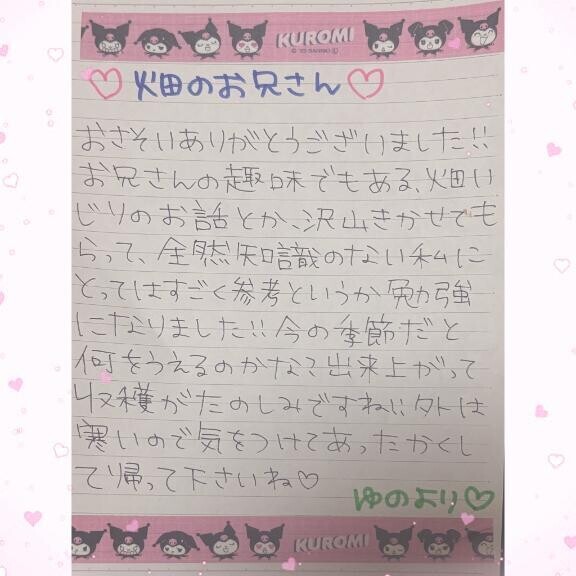 KUROMI
© '22 SANRIO Ⓛ
♡ 畑のお兄さん ♡
おさそいありがとうございました!!
お兄さんの趣味でもある、畑い
じりのお話とか、沢山きかせても
らって、全然知識のない私に
とってはすごく参考というか勉強
になりました!!今の季節だと
何をうえるのかな?出来上がって
収穫がたのしみですね!!外は
寒いので気をつけてあったかくし
て帰って下さいね♡
ゆのより♡
KUROMI